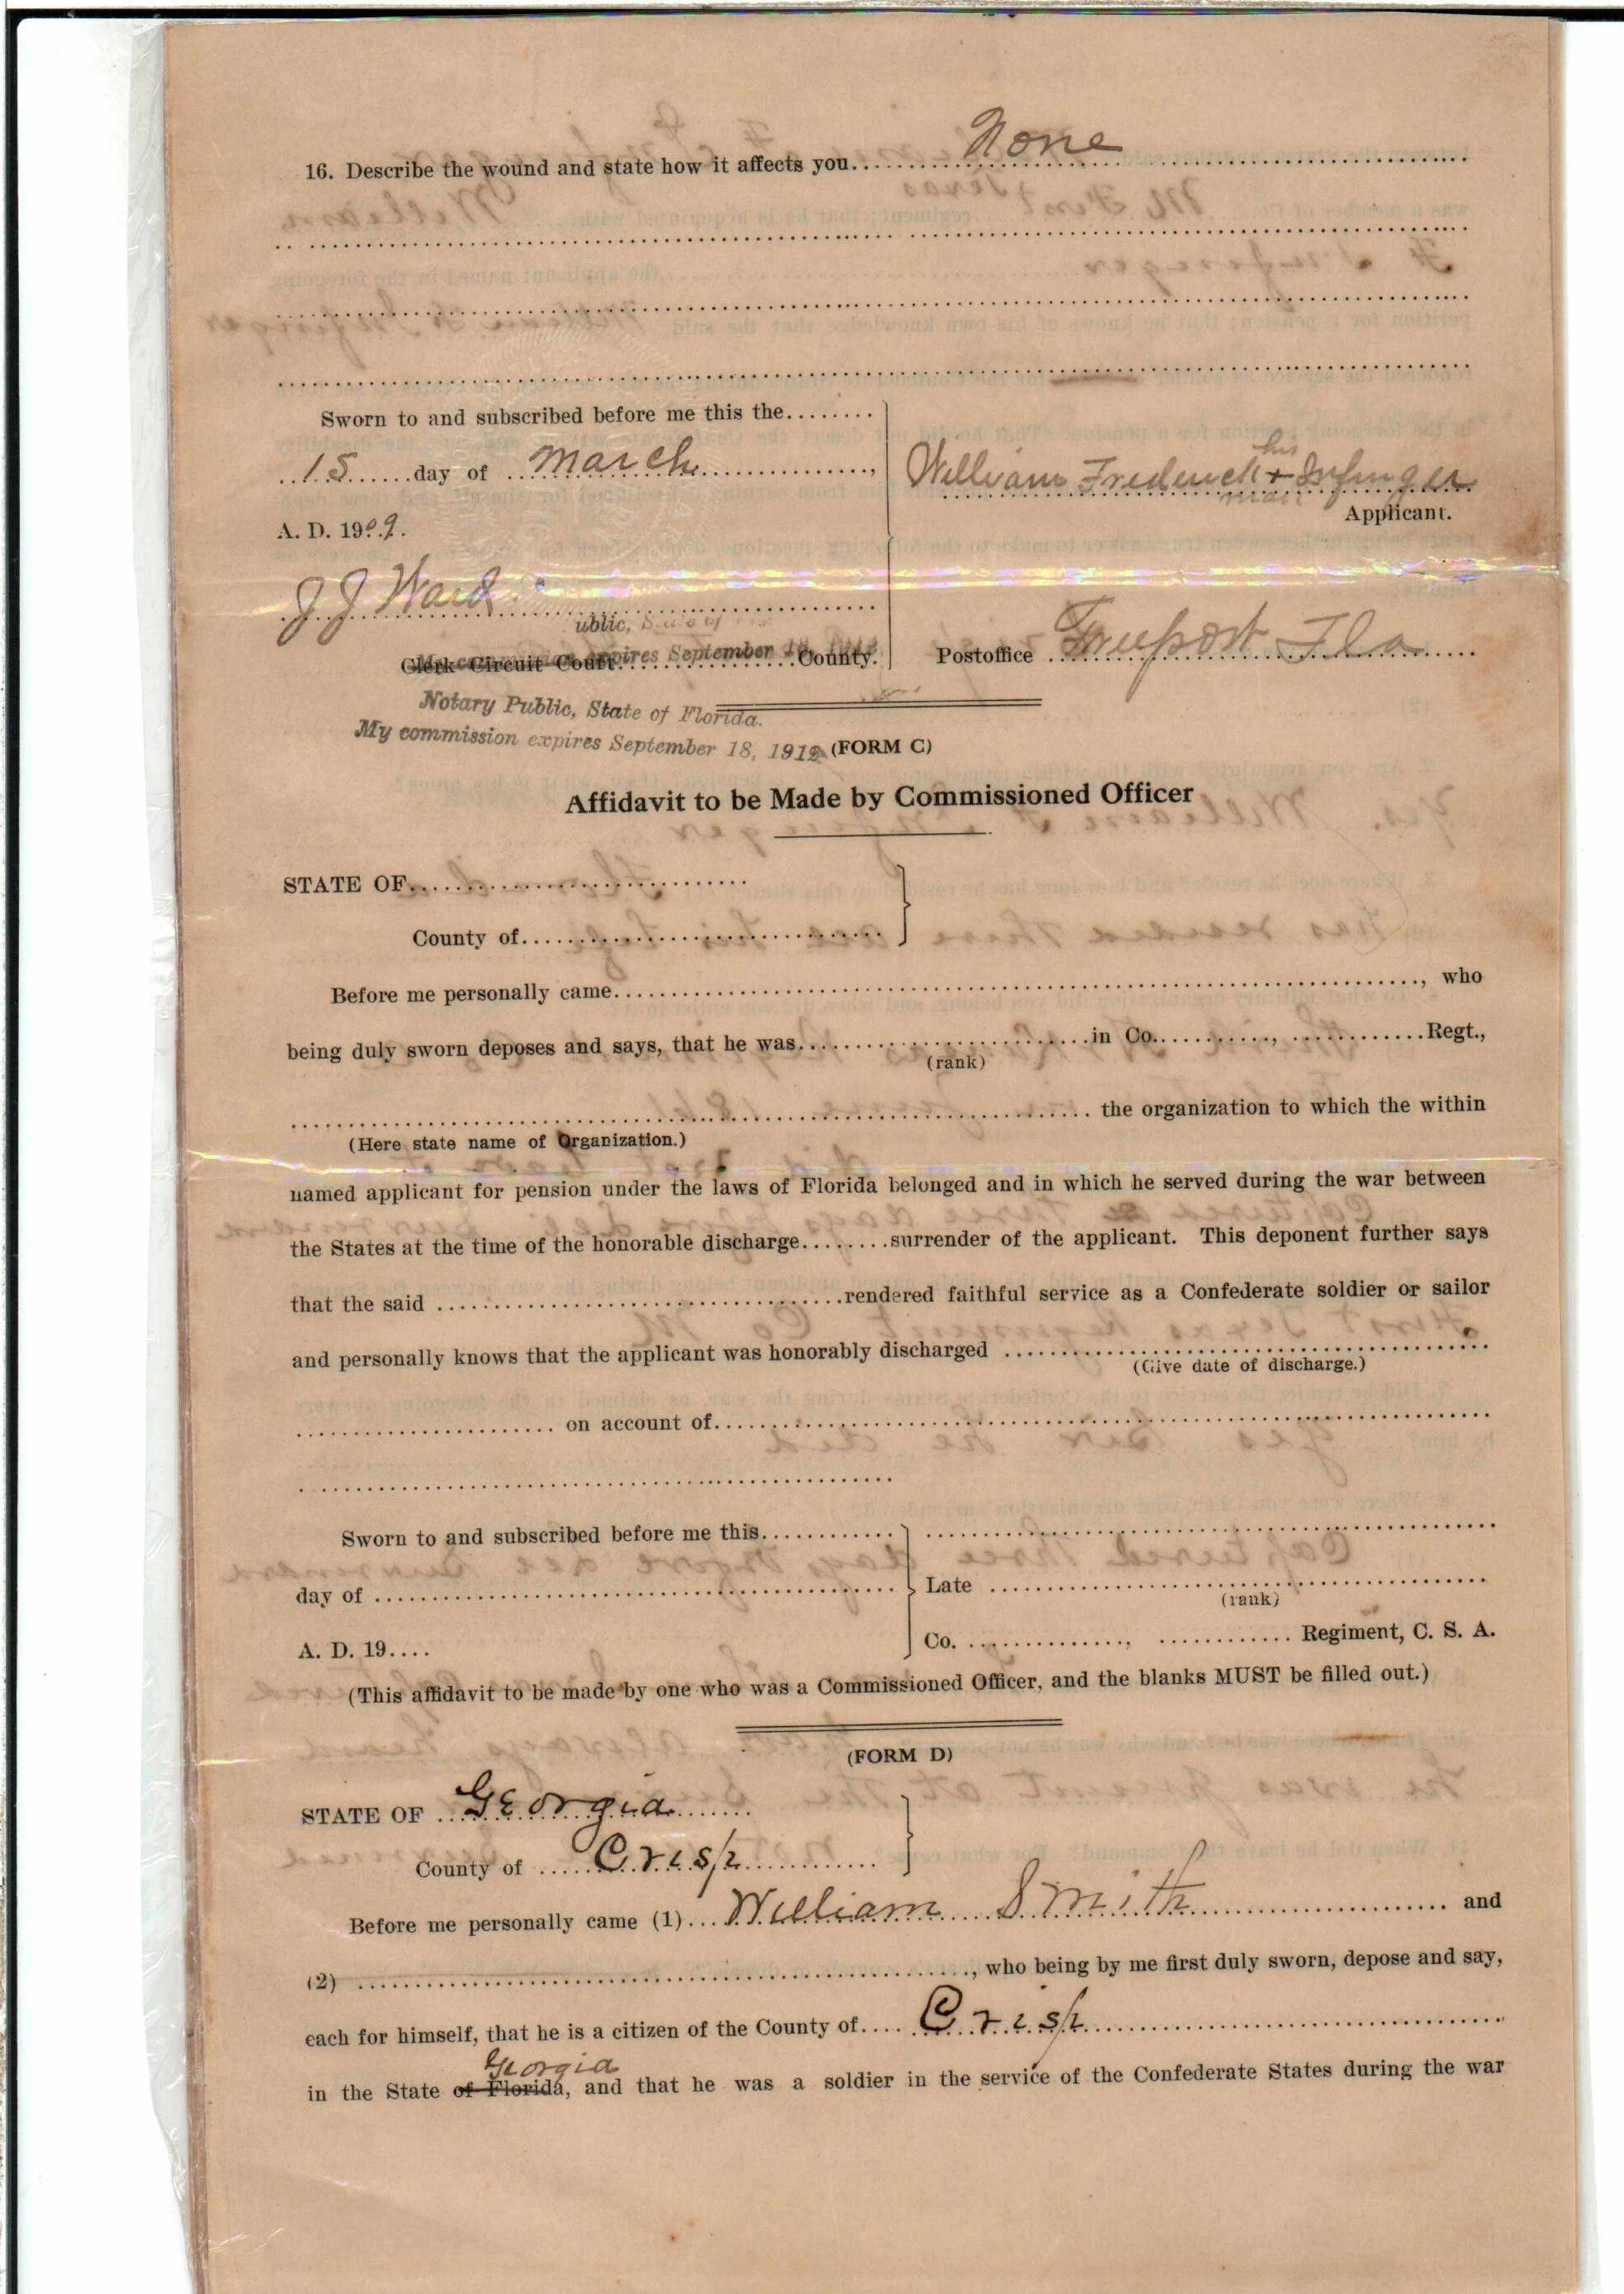 16. Describe the wound and state how it affects you.... None
Sworn to and subscribed before me this the........
15 day of March,
A. D. 1909.
William Frederick his + mark Infinger
Applicant.
J J Ward
ublic, State of
Clerk Circuit Court ........ County.
My commission expires September 18, 1912
Postoffice Freeport Fla
Notary Public, State of Florida.
My commission expires September 18, 1912
(FORM C)
Affidavit to be Made by Commissioned Officer
STATE OF........
County of........
Before me personally came........, who
being duly sworn deposes and says, that he was........in Co........, ........Regt.,
(rank)
........ the organization to which the within
(Here state name of Organization.)
named applicant for pension under the laws of Florida belonged and in which he served during the war between
the States at the time of the honorable discharge........surrender of the applicant. This deponent further says
that the said ........rendered faithful service as a Confederate soldier or sailor
and personally knows that the applicant was honorably discharged ........
(Give date of discharge.)
........ on account of........
Sworn to and subscribed before me this........
day of ........
Late ........
(rank)
A. D. 19....
Co. ........, ........ Regiment, C. S. A.
(This affidavit to be made by one who was a Commissioned Officer, and the blanks MUST be filled out.)
(FORM D)
STATE OF Georgia
County of Crisp
Before me personally came (1)... William Smith ........ and
(2) ........, who being by me first duly sworn, depose and say,
each for himself, that he is a citizen of the County of.... Crisp
Georgia
in the State of Florida, and that he was a soldier in the service of the Confederate States during the war